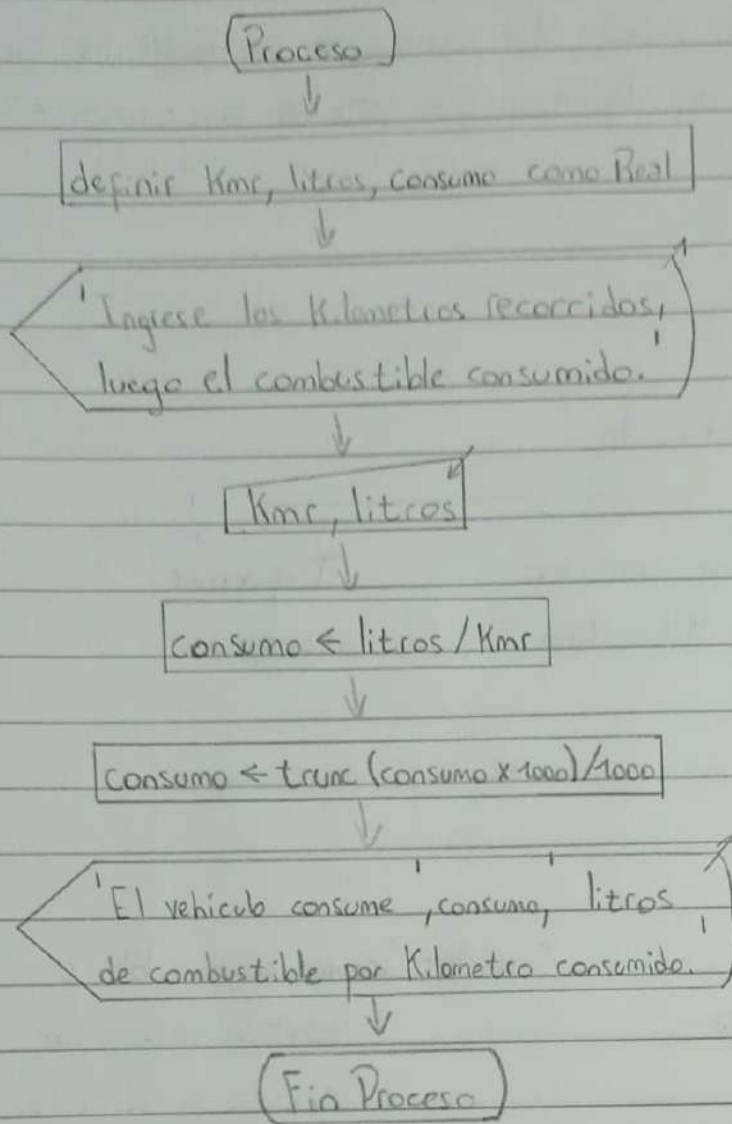 Proceso
definir Kmr, litros, consumo como Real
'Ingrese los Kilometros recorridos,
luego el combustible consumido.'
Kmr, litros
consumo ← litros / Kmr
consumo ← trunc (consumo x 1000)/1000
'El vehiculo consume', consumo,' litros
de combustible por Kilometro consumido.'
Fin Proceso